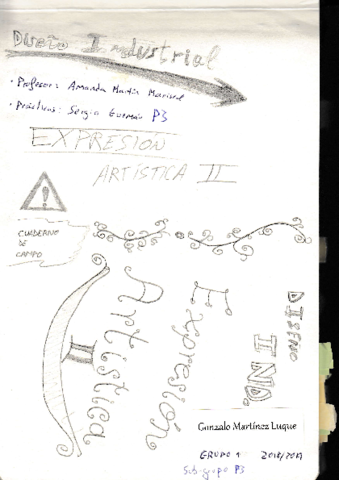 Diseño Industrial
· Profesor: Amanda Martín Mariscal
· Prácticas: Sergio Guzmán P3
EXPRESIÓN
ARTÍSTICA II
!
CUADERNO
DE
CAMPO
Expresión
Artística
II
DISEÑO
IND.
Gonzalo Martínez Luque
GRUPO 1
Subgrupo P3